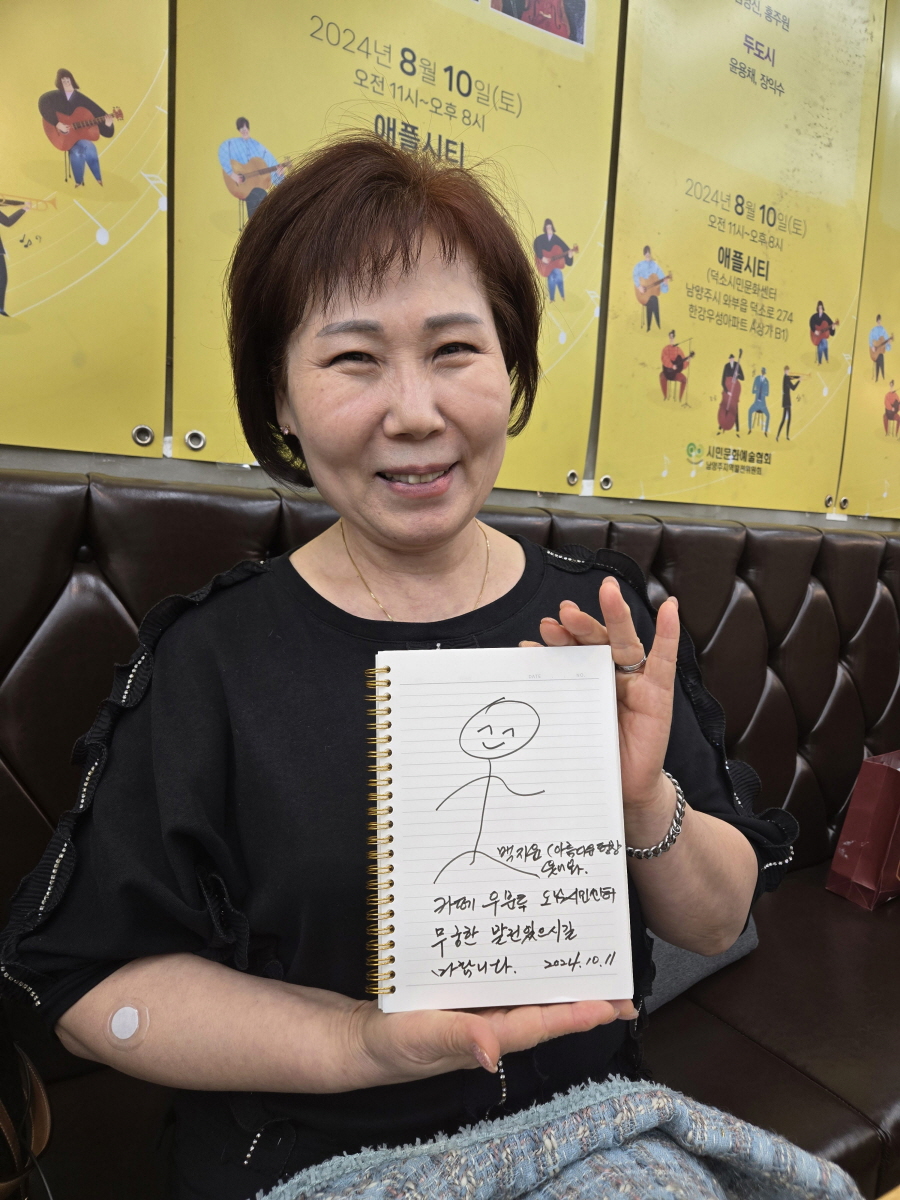 2024년 8월 10일(토)
오전 11시~오후 8시
애플시티
홍주원
두도시
윤용채, 장익수
2024년 8월 10일(토)
오전 11시~오후 8시
애플시티
(덕소시민문화센터
남양주시 와부읍 덕소로 274
한강우성아파트 A상가 B1)
시민문화예술협회
남양주지역발전위원회
(아름다운
카페
무궁한 발전있으시길
바랍니다. 2024.10.11